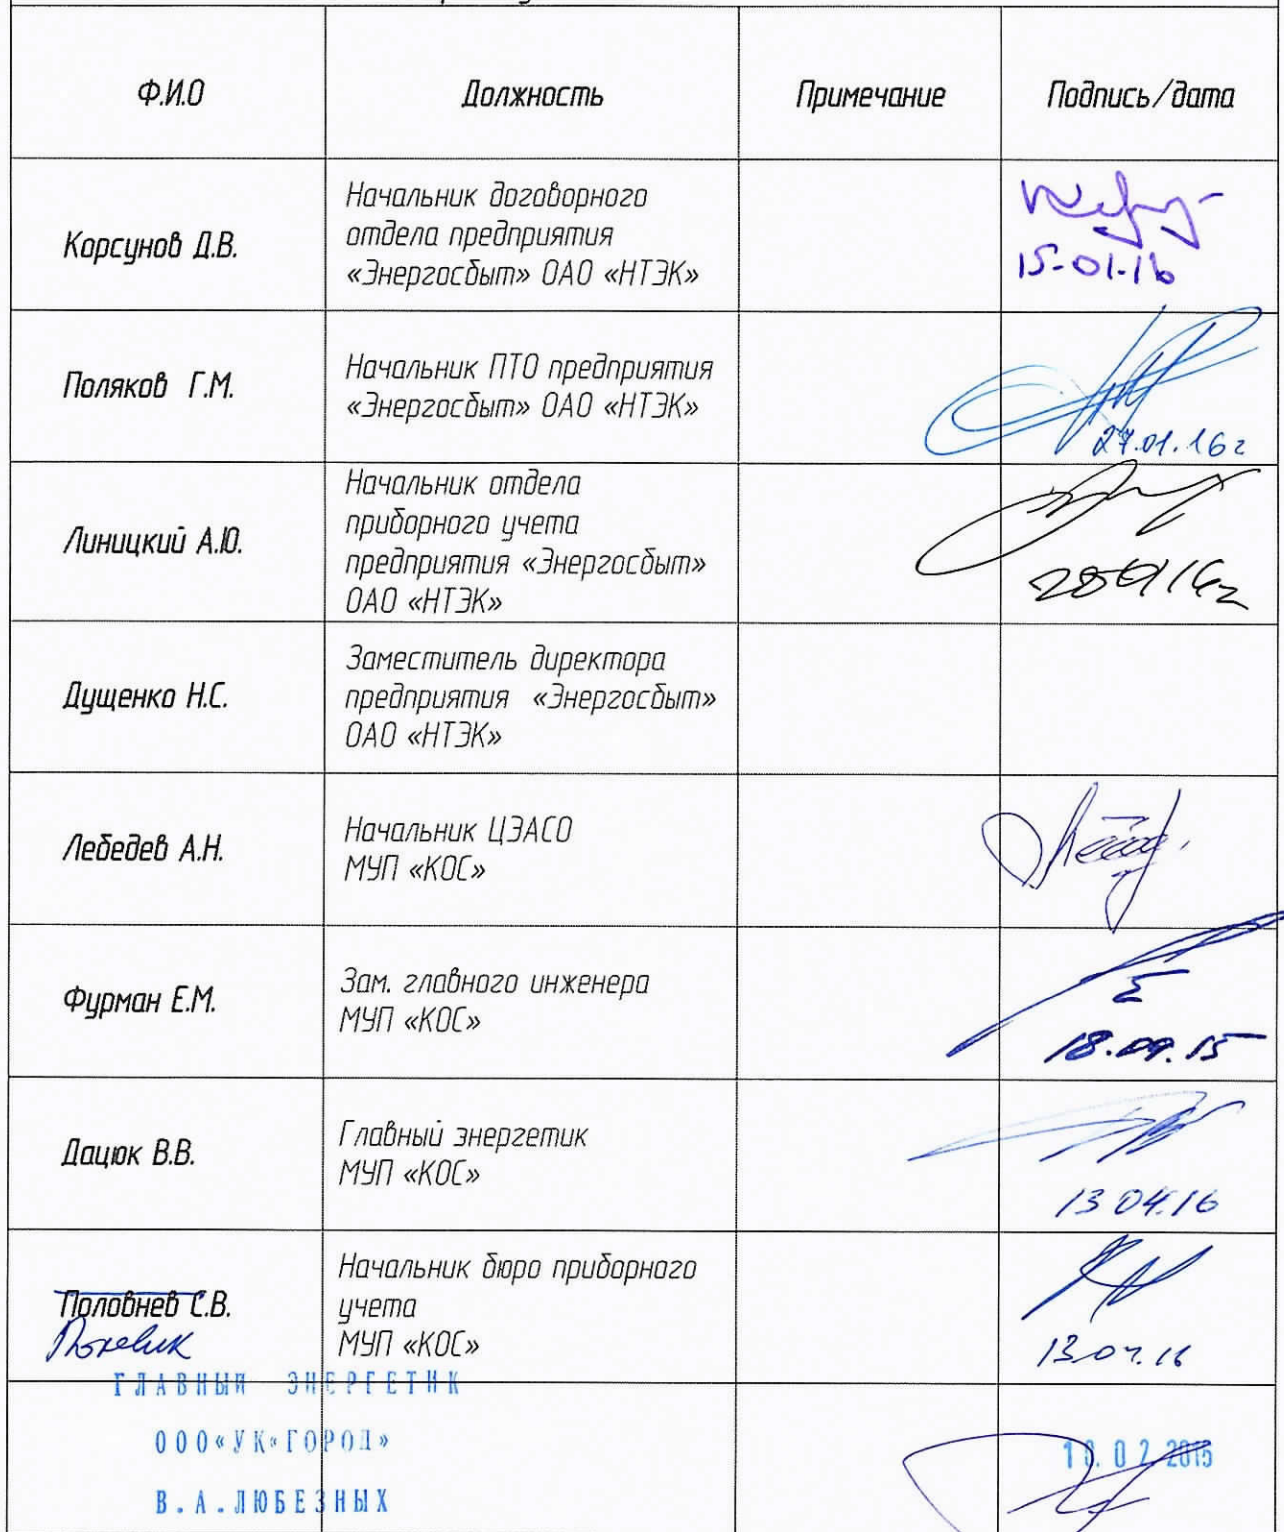 Ф.И.О
Должность
Примечание
Подпись/дата
Корсунов Д.В.
Начальник договорного
отдела предприятия
«Энергосбыт» ОАО «НТЭК»
15-01-16
Поляков Г.М.
Начальник ПТО предприятия
«Энергосбыт» ОАО «НТЭК»
27.01.16г
Линицкий А.Ю.
Начальник отдела
приборного учета
предприятия «Энергосбыт»
ОАО «НТЭК»
Дущенко Н.С.
Заместитель директора
предприятия «Энергосбыт»
ОАО «НТЭК»
Лебедев А.Н.
Начальник ЦЭАСО
МУП «КОС»
Фурман Е.М.
Зам. главного инженера
МУП «КОС»
18.09.15
Дацюк В.В.
Главный энергетик
МУП «КОС»
13 04.16
Половнев С.В.
Начальник бюро приборного
учета
МУП «КОС»
13.04.16
ГЛАВНЫЙ ЭНЕРГЕТИК
ООО«УК«ГОРОД»
В.А.ЛЮБЕЗНЫХ